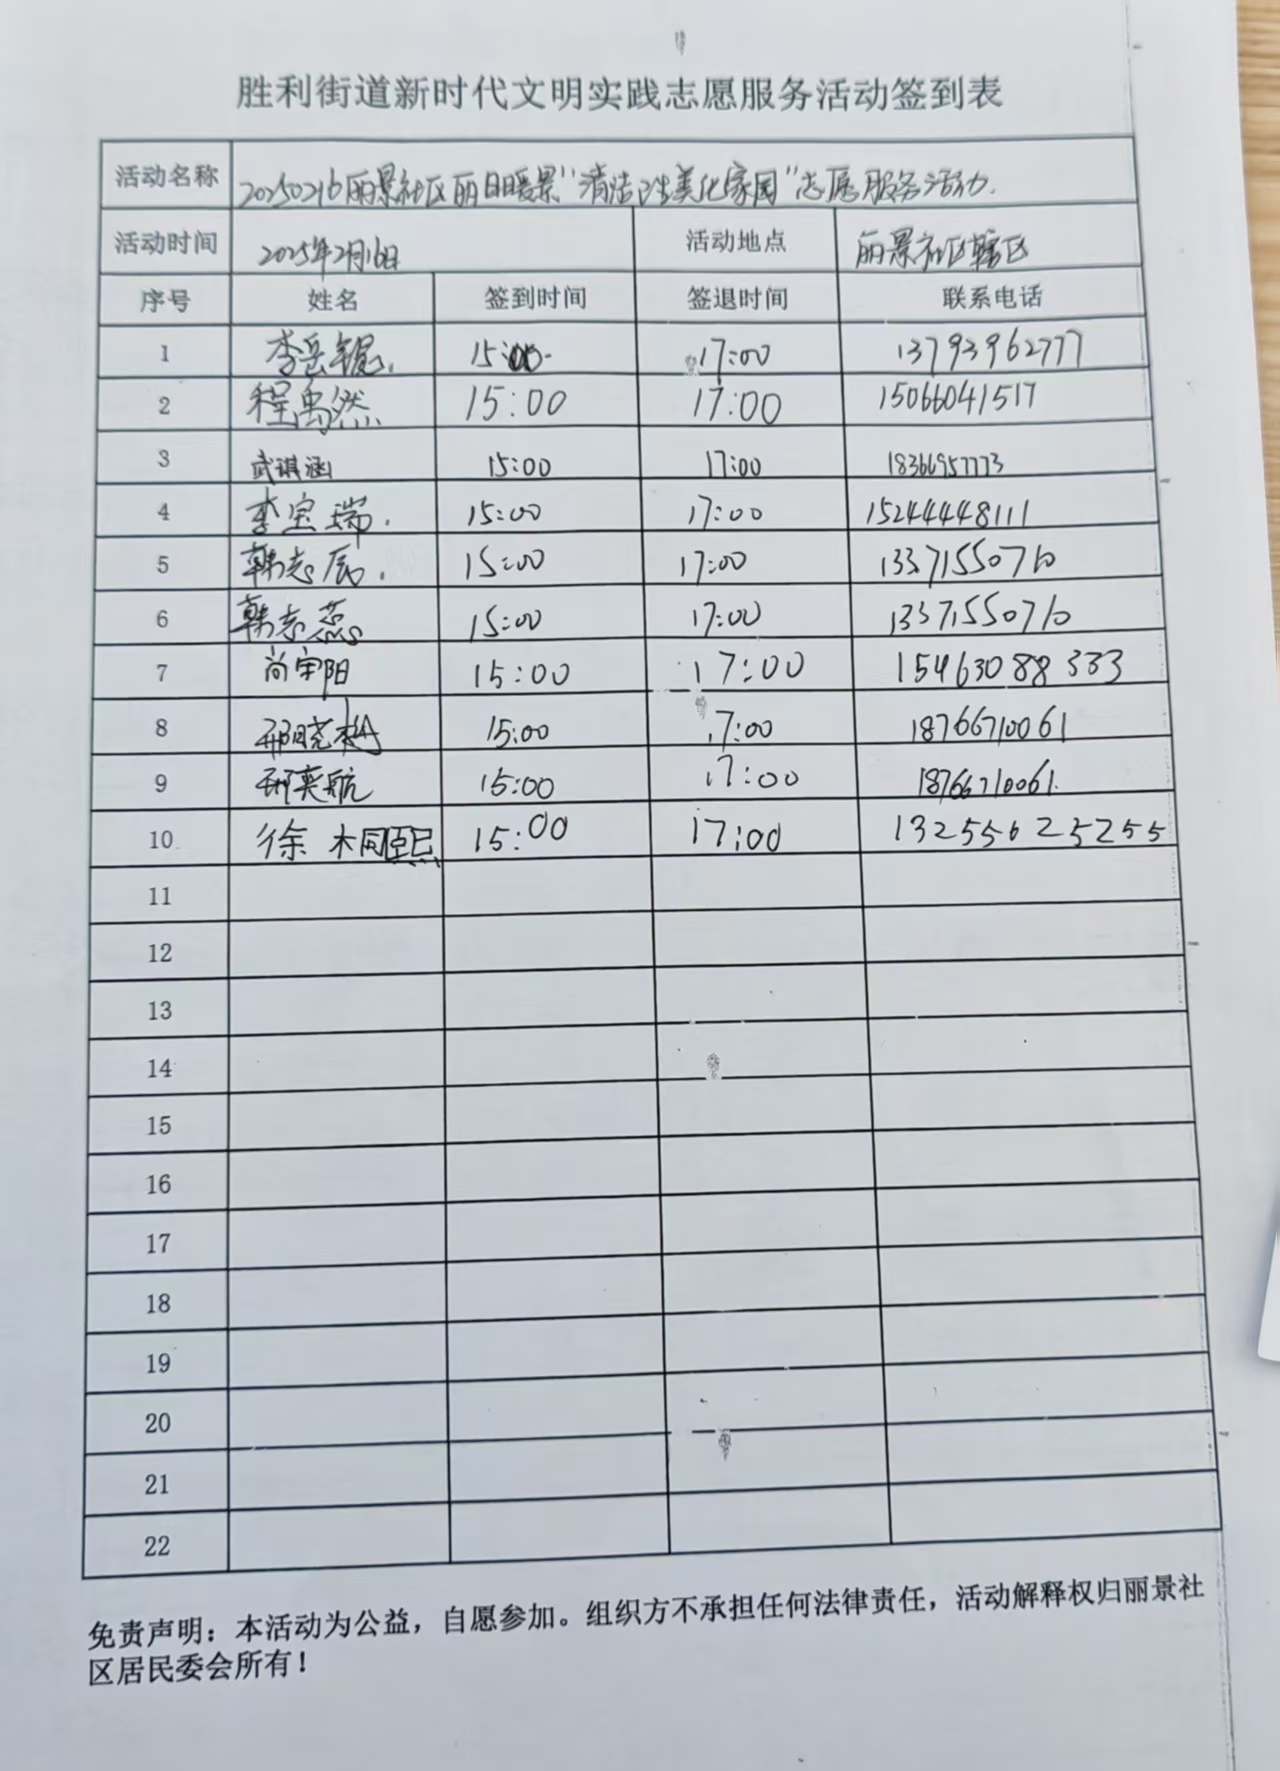 胜利街道新时代文明实践志愿服务活动签到表
活动名称 20250216丽景社区丽日暖景"清洁卫生美化家园"志愿服务活动.
活动时间 2025年2月16日 活动地点 丽景社区辖区
序号 姓名 签到时间 签退时间 联系电话
1 李岳锟. 15:00. 17:00 13793962777
2 程禹然 15:00 17:00 15066041517
3 武祺涵 15:00 17:00 18366957773
4 李宝瑞. 15:00 17:00 15244448111
5 韩志辰. 15:00 17:00 13371550710
6 韩志蕊 15:00 17:00 13371550710
7 尚宇阳 15:00 17:00 15463088333
8 邢晓 15:00 17:00 18766710061
9 邢奕航 15:00 17:00 18766710061.
10 徐桐熙 15:00 17:00 13255625255
11
12
13
14
15
16
17
18
19
20
21
22
免责声明：本活动为公益，自愿参加。组织方不承担任何法律责任，活动解释权归丽景社
区居民委会所有！